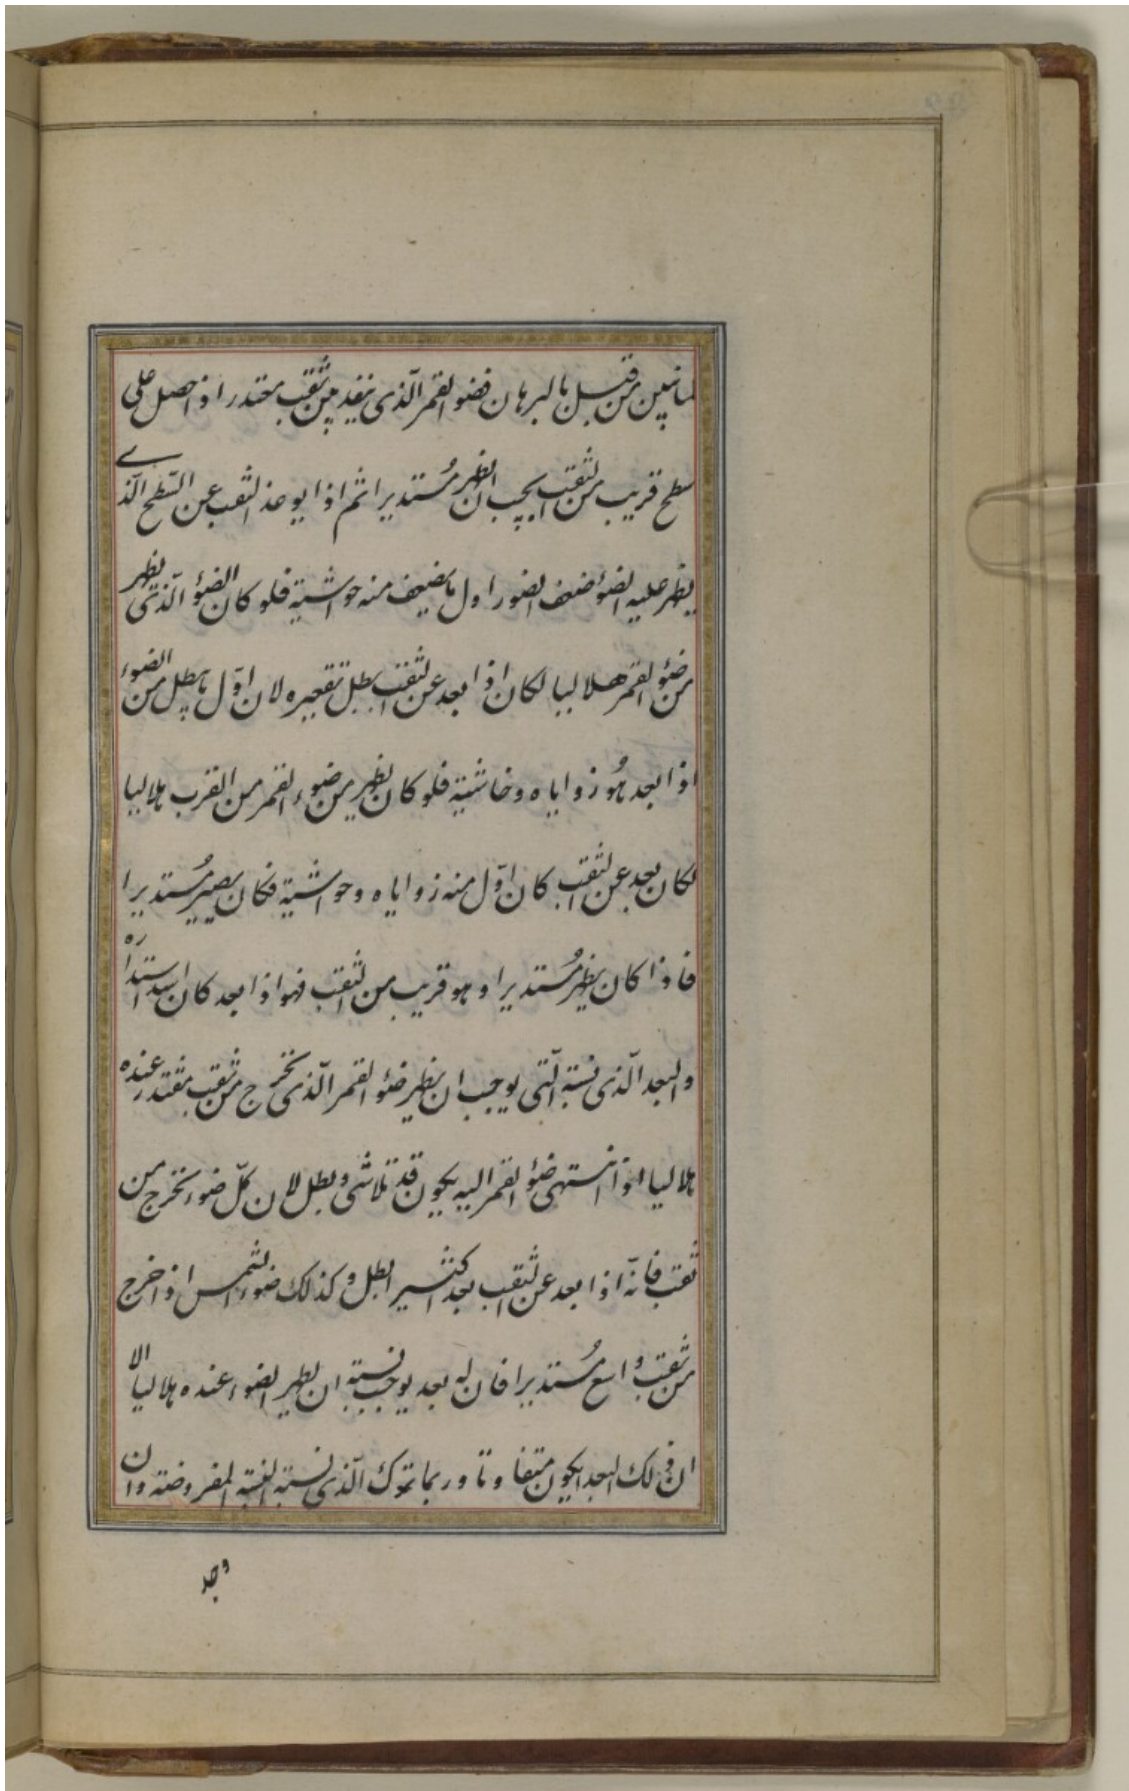 لما تبين من قبل بالبرهان فضو القمر الذى ينفد من ثقب بمقتدر اذا حصل على
سطح قريب من الثقب يجب ان يظهر مستديرا ثم اذا بوعد الثقب عن السطح الذے
يظهر عليه الضؤ ضعف الضو و اول ما يضعف منه حواشية فلو كان الضؤ الذى يظهر
من ضؤ القمر هلاليا لكان اذا بعد عن الثقب يبطل تقعيره لان اول ما يبطل من الضوء
اذا بعد هو زواياه و حاشية فلو كان يظهر من ضوء القمر من القرب هلاليا
لكان بعد عن الثقب كان اول منه زواياه و حواشية فكان يصير مستديرا
فاذا كان يظهر مستديرا و هو قريب من الثقب فهو اذا بعد كان اشد استداره
والبعد الذى نسبة التى يوجب ان يظهر ضئو القمر الذى يخرج من ثقب مقتدر عنده
هلاليا اذا انتهى ضؤ القمر اليه يكون قد تلاشى و بطل لان كل ضوء يخرج من
ثقب فانه اذا بعد عن الثقب بعد اكثيرا بطل و كذلك ضوء الشمس اذا خرج
من ثقب واسع مستديرا فان له بعد يوجب نسبة ان يظهر الضوء عنده هلاليا الا
ان ذلك البعد يكون متفاوتا و ربما ترك الذى نسبة النسبة المفروضته وان
وجد